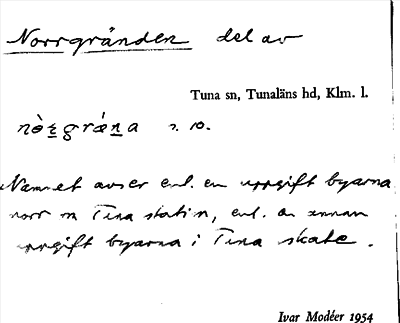 Norrgränden del av
Tuna sn, Tunaläns hd, Klm. l.
nò̱rgrǽna r. 10.
Namnet avser enl. en uppgift byarna
norr om Tuna station, enl. en annan
uppgift byarna i Tuna skate.
Ivar Modéer 1954